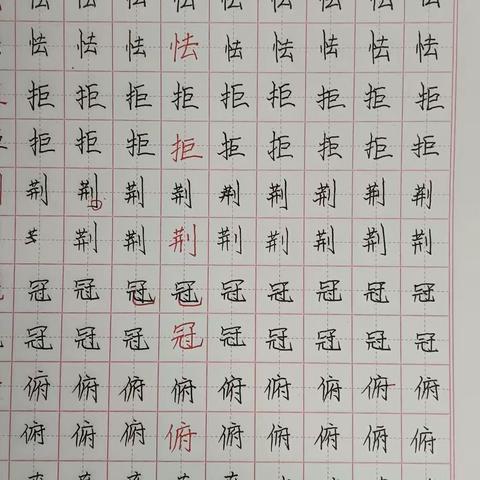 怯怯怯怯怯怯怯怯怯
拒拒拒拒拒拒拒拒拒
拒拒拒拒拒拒拒拒拒
荆荆荆荆荆荆荆荆荆
荆荆荆荆荆荆荆荆
冠冠冠冠冠冠冠冠冠
冠冠冠冠冠冠冠冠冠
俯俯俯俯俯俯俯俯俯
俯俯俯俯俯俯俯俯俯